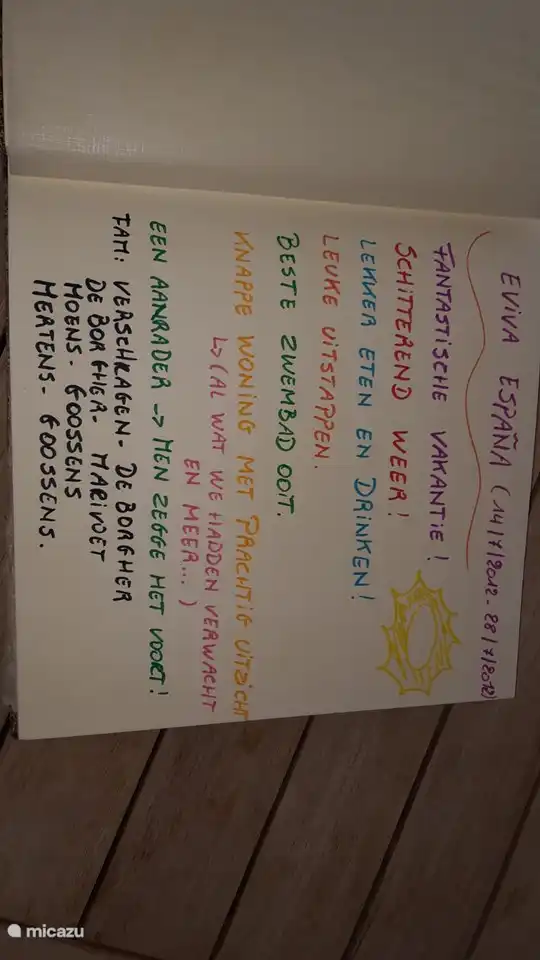 EVIVA ESPAÑA (14/7/2012 - 28/7/2012)
FANTASTISCHE VAKANTIE!
SCHITTEREND WEER!
LEKKER ETEN EN DRINKEN!
LEUKE UITSTAPPEN.
BESTE ZWEMBAD OOIT.
KNAPPE WONING MET PRACHTIG UITZICHT
↳ (AL WAT WE HADDEN VERWACHT
EN MEER...)
EEN AANRADER -> MEN ZEGGE HET VOORT!
FAM: VERSCHRAGEN - DE BORGHER
DE BORGHER - MARIVOET
MOENS - GOOSSENS
MERTENS - GOOSSENS.
micazu